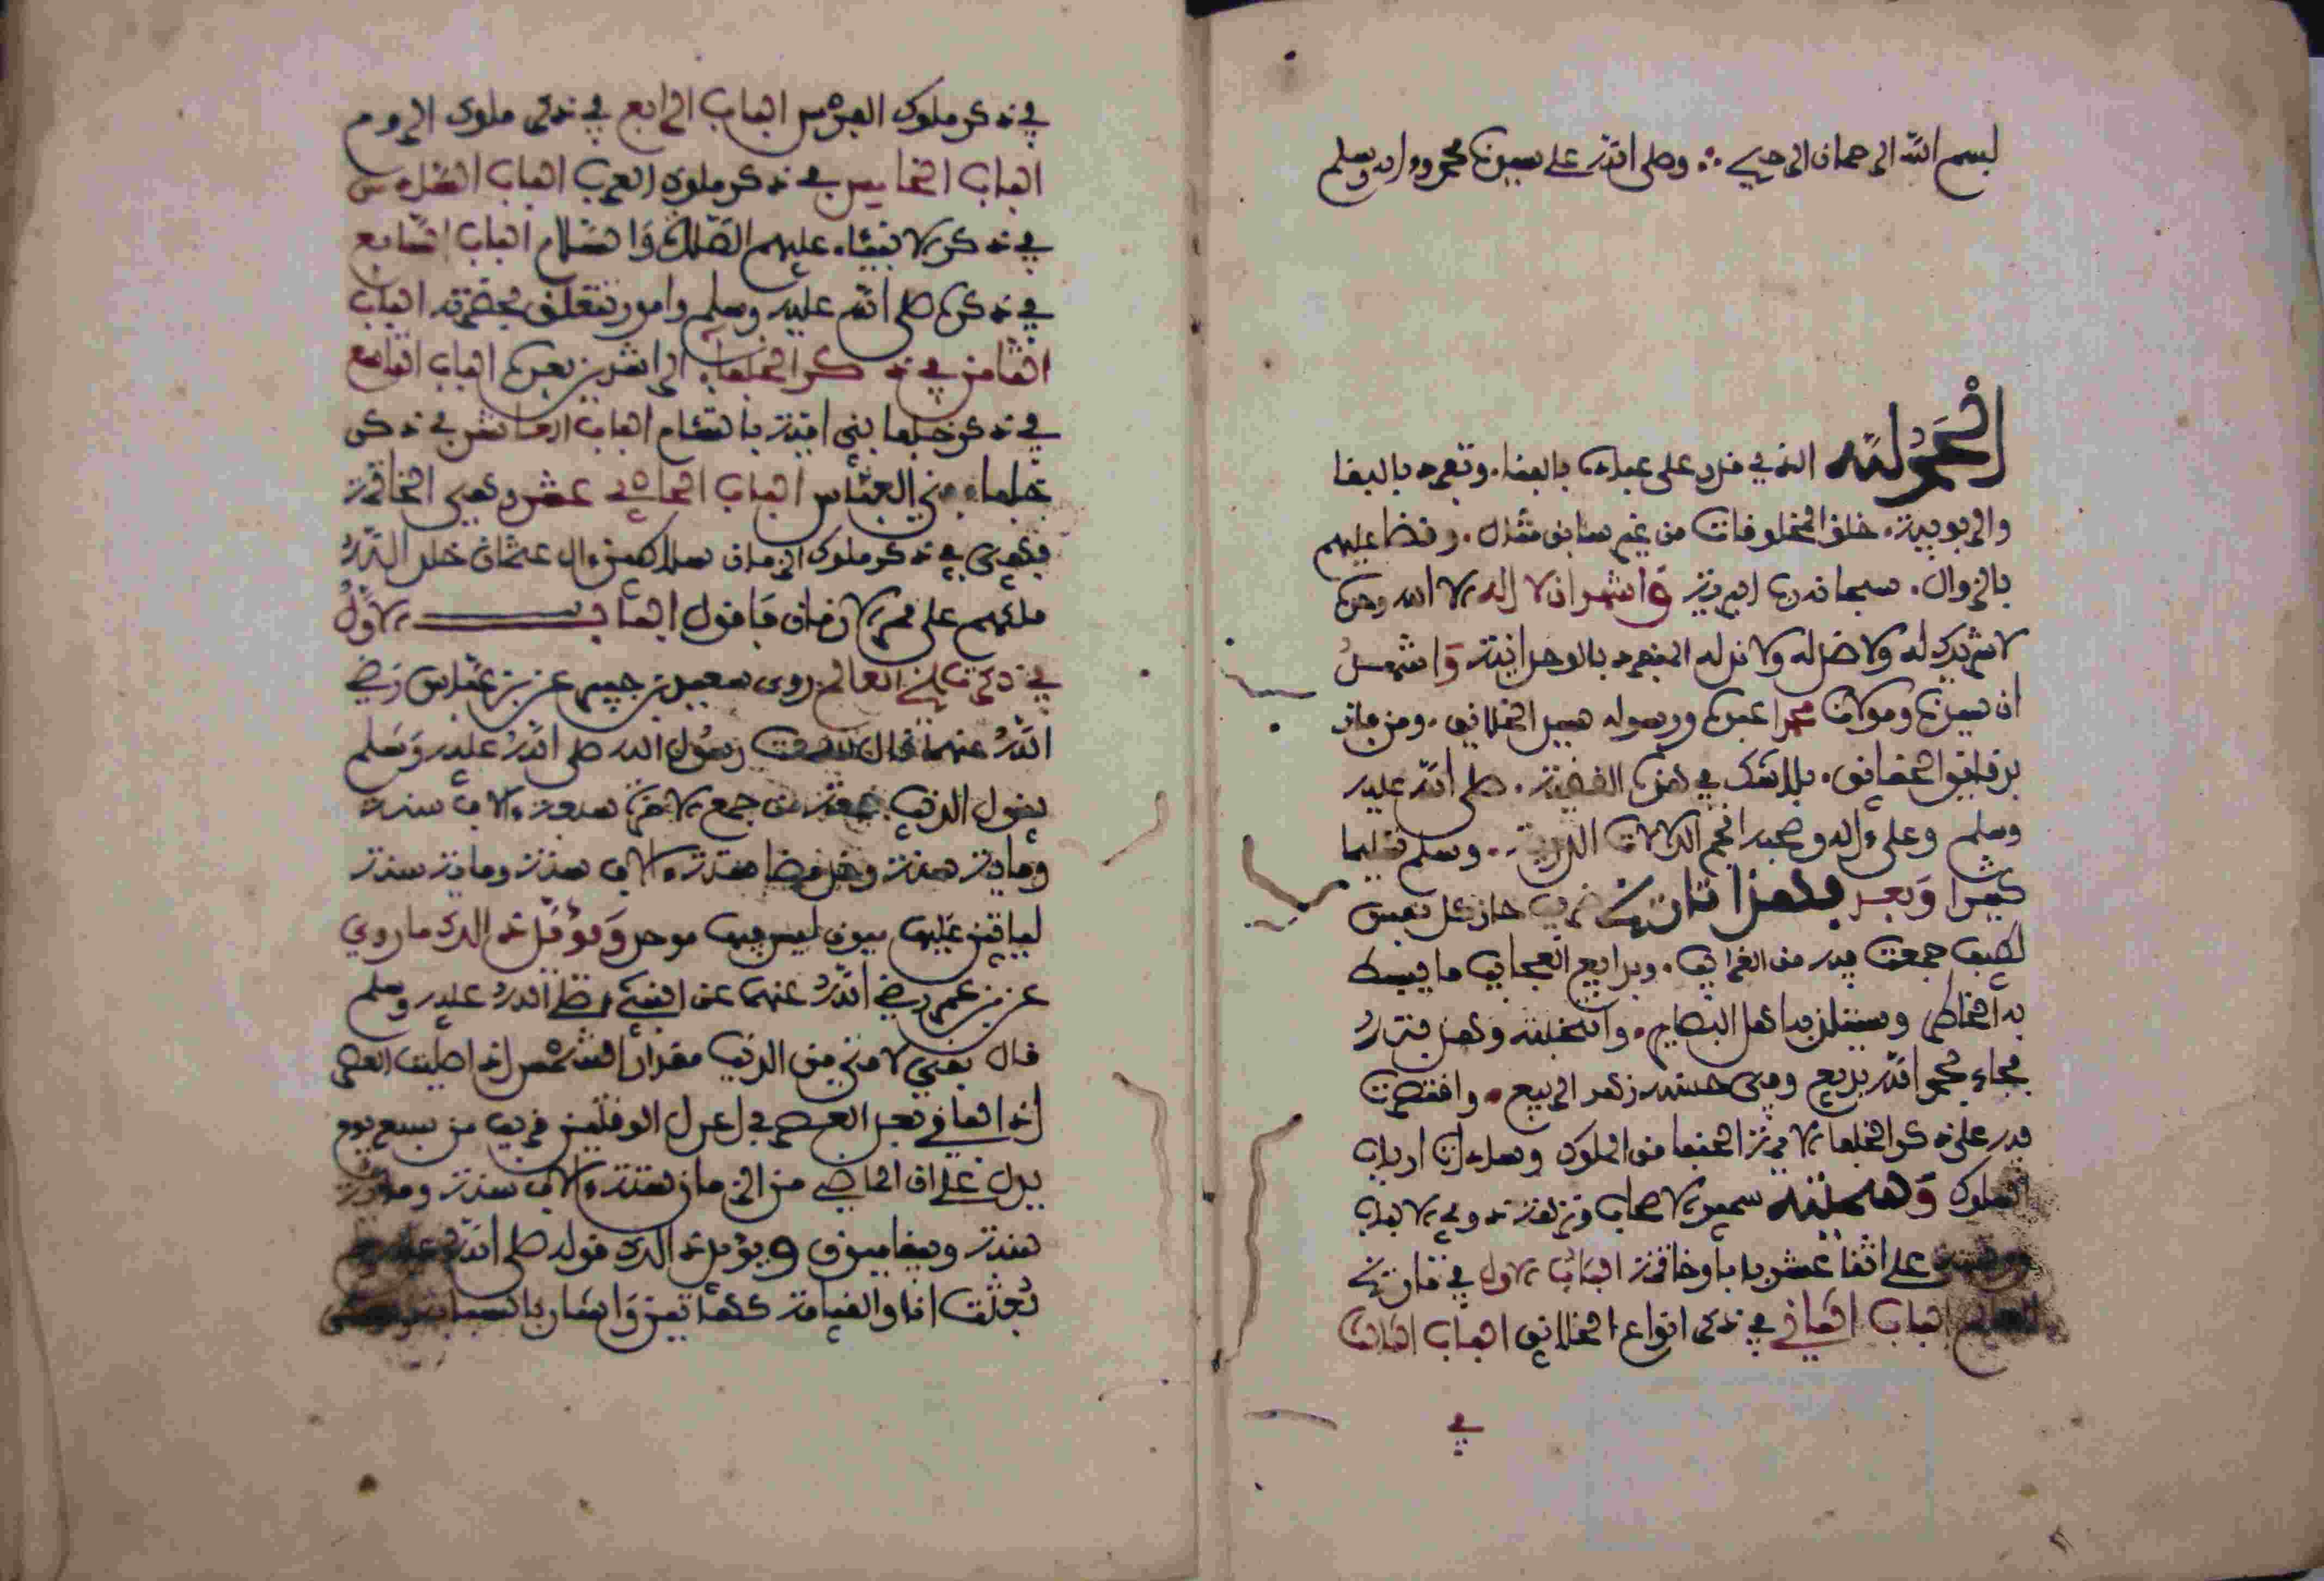 بسم الله الرحمان الرحيم . وصلى الله على سيدنا محمد وءاله وسلم
الحمد لله الذي قدر على عباده بالفنا. وتفرد بالبقا
والربوبية. خلق المخلوقات من غير سابق مثال. وقضا عليهم
بالزوال. سبحانه واشهد ان لا اله الا الله وحده
لا شريك له ولا ضد له ولا ند له المنفرد بالوحدانية وَاشهدُ
ان سيدنا ومولانا محمدا عبده ورسوله سيد الخلائق. ومن جاز
بدقايق الحقايق. بلا شك في هذه القضية. صلى الله عليه
وسلم وعلى ءاله وصحبه انجم الدلالات الدرية. وسلم تسليما
كثيرا وَبعد فهذا تاريخ غريب حاز كل نفيس
لطيف جمعت فيه من الغرائب. وبدايع العجايب ما ينبسط
به الخاطر ويستلذ به اهل البصاير. وانتخبته وهذبته
فجاء بحمد الله بديع وفي حسنه زهر الربيع. واقتصرت
فيه على ذكر الخلفا الايمة الحنفا من الملوك وسادات ارباب
السلوك وَسميته سمير الاصحاب ونزهة ذوي الالباب
ورتبته على اثنا عشر بابا وخاتمة البابُ الاول في تاريخ
العالم الباب الثاني في ذكر انواع الخلائق الباب الثالث
في
في ذكر ملوك الفرس الباب الرابع في ذكر ملوك الروم
الباب الخامس في ذكر ملوك العرب الباب السادس
في ذكر الانبيَاء عليهم الصّلاة وَالسّلام الباب السّابع
في ذكره صلى الله عليه وسلم وامور تتعلق بحضرته الباب
الثامن في ذكر الخلفاء الراشدين بعده الباب التاسع
في ذكر خلفا بني امية بالشام الباب العاشر في ذكر
خلفاء بني العباس الباب الحادي عشر وهي الخاتمة
فهي في ذكر ملوك الزمان سلاطين ءال عثمان خلد اللهُ
ملكهم على ممر الازمان فاقول الباب الاولُ
في ذكر تاريخ العالم روى سعيد بن جبير عن بن عبّاس رضي
اللهُ عنهما قال سمعت رسُول الله صلى اللهُ عليه وَسلم
يقول الدنيا جمعة من جمع الاخرة سبعة ءالاف سنة
ومايـة سنة وقد مضا ستة ءالاف سنة وماية سنة
لياتين عليها ميون ليس فيها موحد وَيؤيد ذالك ما روي
عن بن عمر رضي اللهُ عنهما عن النبي صلى اللهُ عليه وسلم
قال بقي لامتي من الدنيا مقدار الشمس اذا صليت العصر
اذ الباقي بعد العصر في اعدل الوقتين قريب من سبع يوم
يدل على ان الماضي من الزمان ستة ءالاف سنة وماية
سنة وبقا ميون ويؤيد ذالك قوله صلى اللهُ عليه وسلم
بُعثت انا والقيامة كهَاتين وَاشار بالسبابة والوسطى